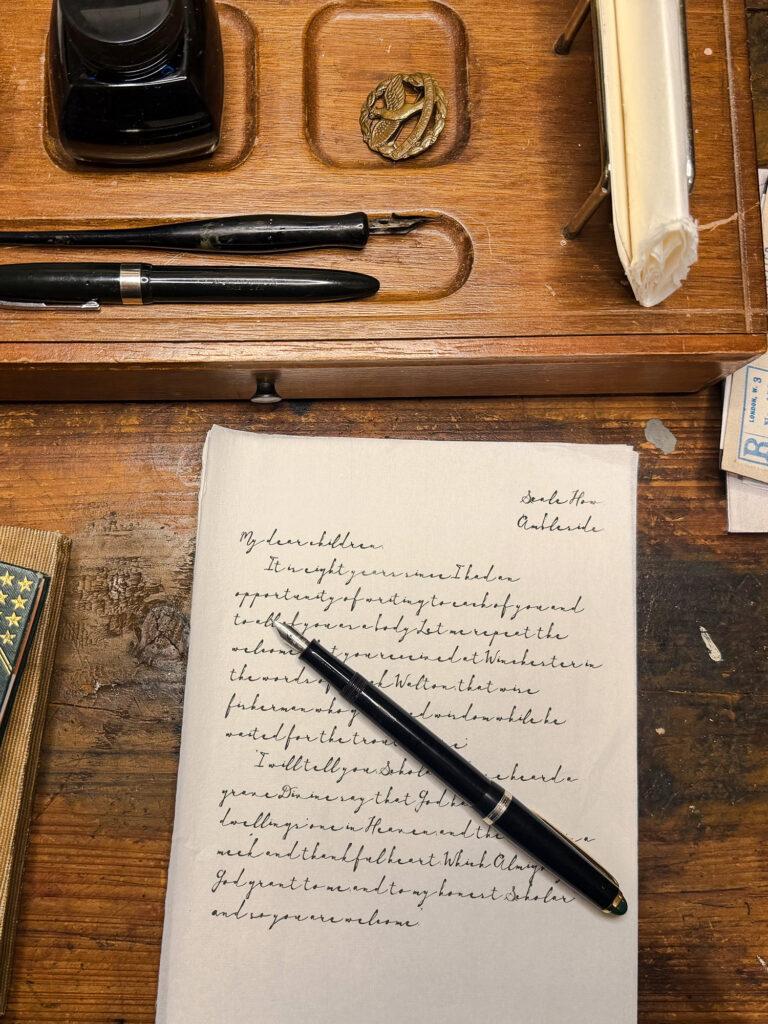 LONDON, W. 3
B
Scale How
Ambleside
My dear children,
It is eight years since I had an
opportunity of writing to each of you and
to all of you as a body. Let me repeat the
welcome you received at Winchester in
the words of Walton that wise
fisherman who wisdom while he
waited for the
'I will tell you, heard a
grave Divine say that God
dwellings one in Heaven and the in a
meek and thankful heart. Which
God grant to me, and to my honest Scholar
and so you are welcome'